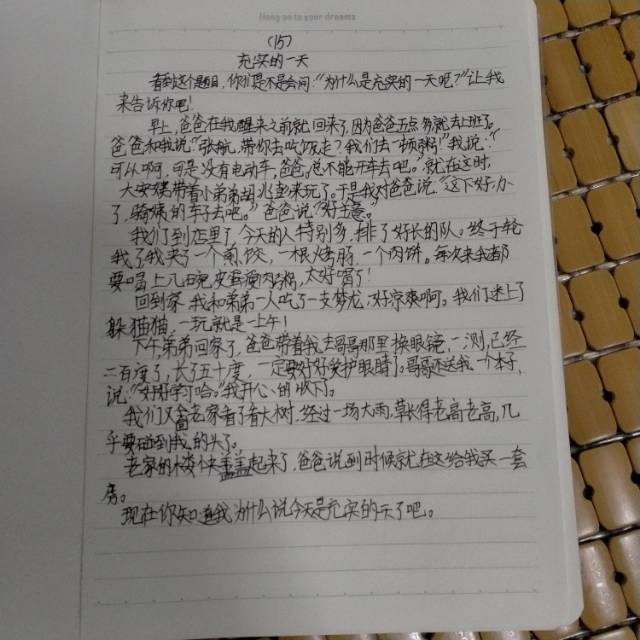 Hang on to your dreams
(15)
充实的一天
看到这个题目,你们是不是会问:"为什么是充实的一天呢?"让我
来告诉你吧!
早上,爸爸在我醒来之前就回来了,因为爸爸五点多就去上班了。
爸爸和我说:"张航,带你去吃饭走?我们去一顿粥!"我说:"
可以啊,可是没有电动车,爸爸,总不能开车去吧。"就在这时,
大安媒带着小弟弟胡兆来玩了,于是我对爸爸说:"这下好办
了,骑姨的车子去吧。"爸爸说:"好主意。"
我们到店里了,今天的人特别多,排了好长的队。终于轮
我了我夹了一个煎饺,一根烤肠,一个肉饼。每次来我都
要喝上几碗皮蛋瘦肉粥,太好喝了!
回到家我和弟弟一人吃了一支梦龙,好凉爽啊。我们迷上了
躲猫猫,一玩就是一上午!
下午弟弟回家了,爸爸带着我去哥哥那里换眼镜,一测,已经
二百度了,长了五十度,一定要好好爱护眼睛了。哥哥还送我一个本子,
说:"好好学习哈。"我开心的收下。
我们又回老家看了看大树,经过一场大雨,草长得老高老高,几
乎要碰到我的头了。
老家的楼体盖起来了,爸爸说到时候就在这给我买一套
房。
现在你知道我为什么说今天是充实的一天了吧。